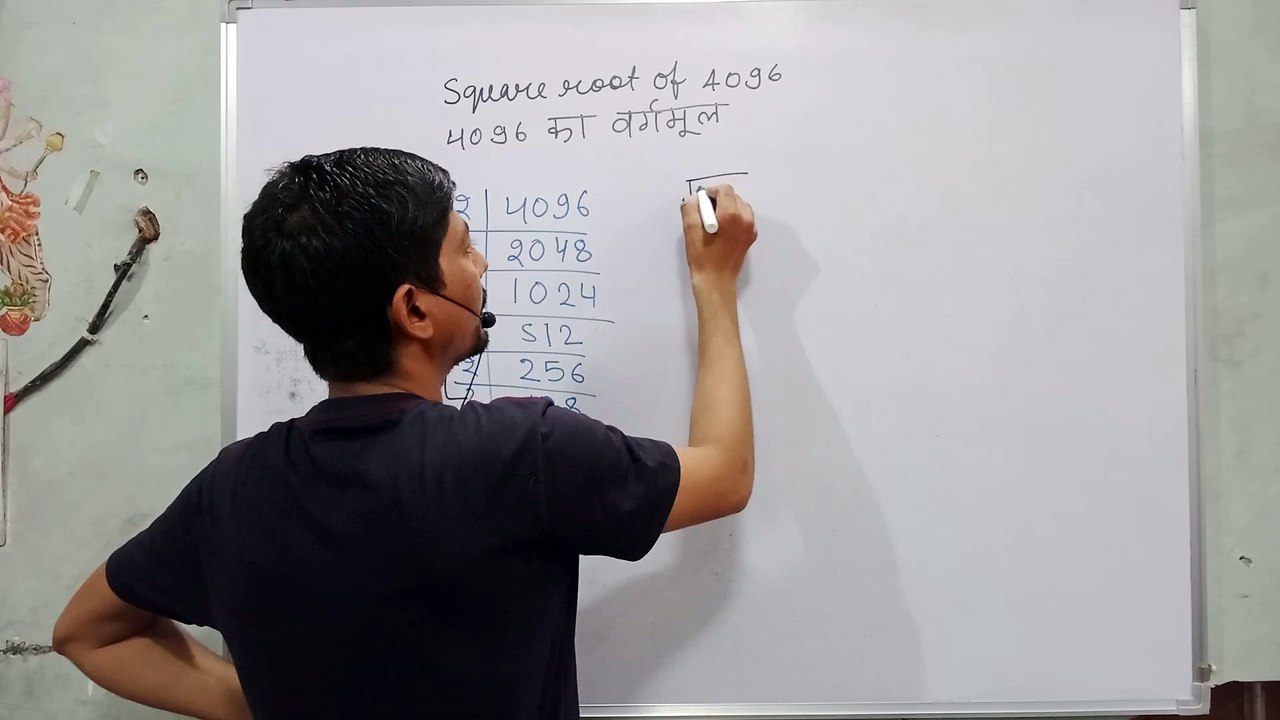 Square root of 4096
4096 का वर्गमूल
2 4096
2048
1024
512
2 256